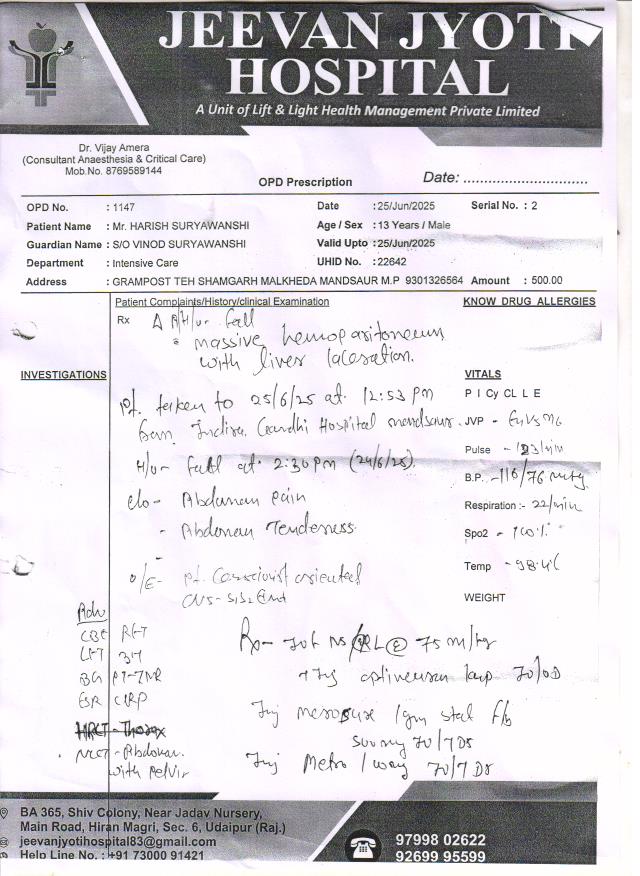 JEEVAN JYOTI
HOSPITAL
A Unit of Lift & Light Health Management Private Limited
Dr. Vijay Amera
(Consultant Anaesthesia & Critical Care)
Mob.No. 8769589144
OPD Prescription
Date: ..............................
OPD No. : 1147
Date : 25/Jun/2025
Serial No. : 2
Patient Name : Mr. HARISH SURYAWANSHI
Age / Sex : 13 Years / Male
Guardian Name : S/O VINOD SURYAWANSHI
Valid Upto : 25/Jun/2025
Department : Intensive Care
UHID No. : 22642
Address : GRAMPOST TEH SHAMGARH MALKHEDA MANDSAUR M.P 9301326564 Amount : 500.00
Patient Complaints/History/clinical Examination
KNOW DRUG ALLERGIES
Rx
fall
massive hemoparitoneum
with liver laceration.
INVESTIGATIONS
VITALS
P I Cy CL L E
Pt. taken to 25/6/25 at 12:53 pm
Indira Gandhi Hospital mandsaur.
JVP -
Pulse - /min
H/o- fall at 2:30 pm (24/6/25).
B.P. - 116/76 mmHg
c/o - Abdomen pain
Respiration :- 22/min
- Abdomen Tenderness
Spo2 - 100%
Temp - 98.4
O/E- pt. conscious oriented
CNS - S1S2
WEIGHT
Adv
CBC RFT
LFT
BG PT-INR
ESR CRP
HRCT - Thorax
NCCT - Abdomen
with pelvis
Rx - NS/RL @ 75 ml/hr
+ Inj optineuron 1amp IV/OD
Inj 1gm stat f/b
500mg IV/TDS
Inj Metro IV/TDS
BA 365, Shiv Colony, Near Jadav Nursery,
Main Road, Hiran Magri, Sec. 6, Udaipur (Raj.)
jeevanjyotihospital83@gmail.com
Help Line No. : +91 73000 91421
97998 02622
92699 95599